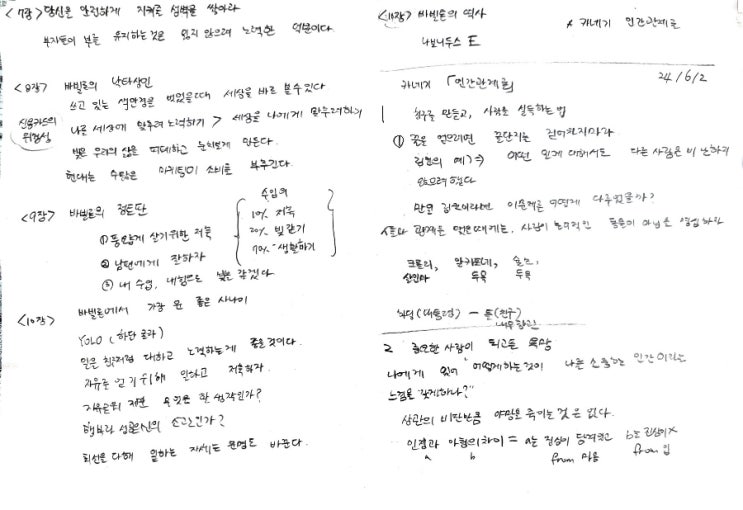 <7장> 당신은 안전하게 지켜줄 성벽을 쌓아라
부자들이 부를 유지하는 것은 잃지 않으려 노력한 덕분이다
<8장> 바빌론의 낙타상인
쓰고 있는 색안경을 벗었을때 세상을 바로 볼수있다
신용카드의 위험성
나를 세상에 맞추려 노력하기 > 세상을 나에게 맞추려하기
빚은 우리의 삶을 피폐하고 눈치보게 만든다.
현대는 수많은 마케팅이 소비를 부추긴다.
<9장> 바빌론의 점토판
① 풍요롭게 살기위한 저축
② 남편에게 잘하자
③ 내 수입, 내힘으로 빚을 갚겠다
수입의
10% 저축
20% 빚갚기
70% 생활하기
<10장> 바빌론에서 가장 운 좋은 사나이
YOLO (하단 효과)
일은 친구처럼 대하고 노력하는게 좋은것이다.
자유를 얻기위해 일하고 저축하자
최선을 다해 일하는 자세는 운명도 바꾼다.
<11장> 바빌론의 역사
나보니두스 E
* 카네기 인간관계론
카네기 「인간관계론」
24/6/2
1 친구를 만들고, 사람을 설득하는 법
① 꿀을 얻으려면 꿀단지를 걷어차지마라
어떤 일에 대해서도 다른 사람을 비난하지
않으려했다
만일 링컨이라면 이 문제를 어떻게 다루었을까?
사람과 관계를 맺을때에는, 사람이 논리적인 동물이 아님을 명심하라
크롤리, 알카포네, 슐츠,
살인마 두목 두목
하딩 (대통령) - 돈(친구)
내무장관
2 중요한 사람이 되고픈 욕망
나에게 있어 "어떻게하는것이 나를 소중한 인간이라는
느낌을 갖게하나?"
상관의 비판만큼 야망을 죽이는 것은 없다.
인정과 아첨의 차이 = a는 진심이 담겨있고 b는 진심이 X
a b from 마음 from 입